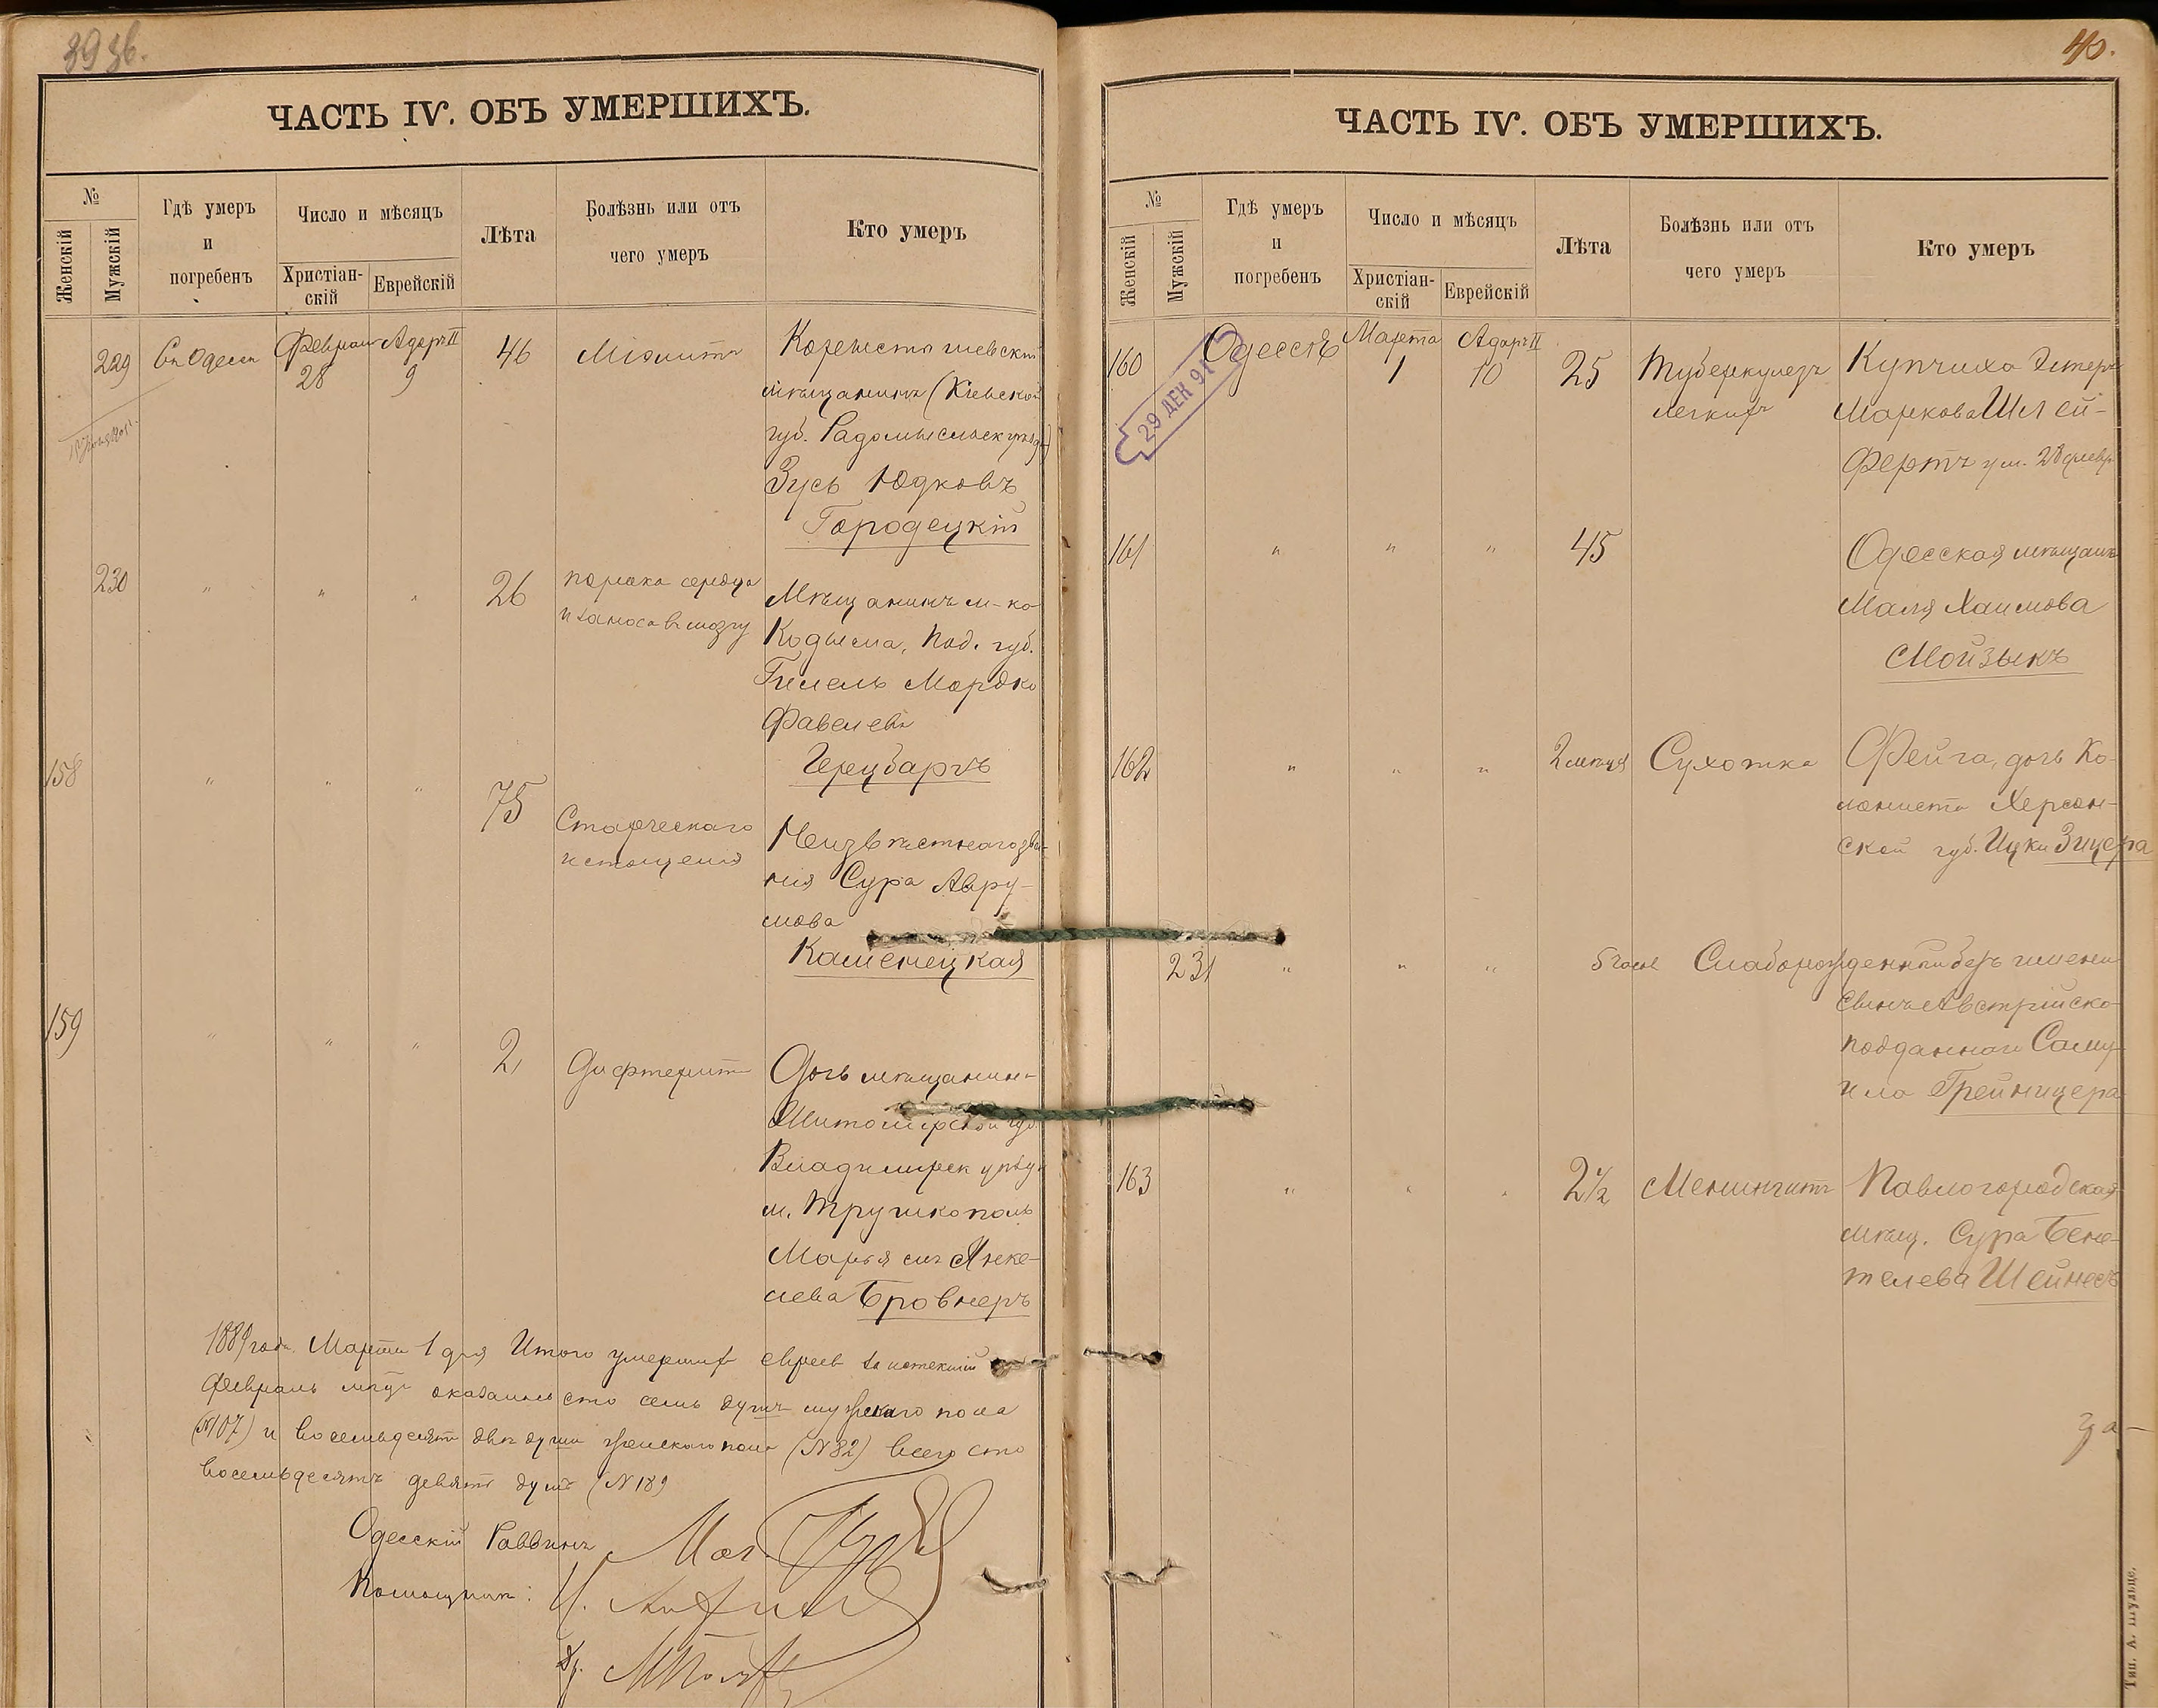 39 зв.
ЧАСТЬ IV. ОБЪ УМЕРШИХЪ.
№
Женскій
Мужскій
Гдѣ умеръ
и
погребенъ
Число и мѣсяцъ
Христіан-
скій
Еврейскій
Лѣта
Болѣзнь или отъ
чего умеръ
Кто умеръ
229
Адаръ II
28
9
46
Міэлитъ
мѣщанинъ (Кіевской
губ. Радомысльск уѣзда)
Зусь Юдковъ
Городецкій
230
"
"
"
26
порока сердца
и заноса въ мозгу
Мѣщанинъ м-ко
Кодыма, Под. губ.
Гилель Мордко
Фавелевъ
Герцбаргъ
158
"
"
"
75
Старческаго
истощенія
Неизвѣстнаго зва-
нія Сура Авру-
мова
Каменецкая
159
"
"
"
2
Дифтеритъ
Дочь мѣщанина
Житомирской губ.
Владимирск уѣзда
м.
Марья Янке-
лева Бровнеръ
1889 года Марта 1 дня Итого умершихъ евреевъ за истекшій
Февраль мѣц оказалось сто семь душъ мужскаго пола
(№107) и восемьдесятъ двѣ души женскаго пола (№82) всего сто
восемьдесятъ девять душъ (№189
Одесскій Раввинъ
Помощникъ:
40.
ЧАСТЬ IV. ОБЪ УМЕРШИХЪ.
№
Женскій
Мужскій
Гдѣ умеръ
и
погребенъ
Число и мѣсяцъ
Христіан-
скій
Еврейскій
Лѣта
Болѣзнь или отъ
чего умеръ
Кто умеръ
160
29 ДЕК 91
Одессѣ
Марта
1
Адаръ II
10
25
Туберкулезъ
легкихъ
Купчиха Эстеръ
Маркова Шлей-
фертъ ум. 28 февр
161
"
"
"
45
Одесская мѣщанка
Маля Хаимова
Мойзыкъ
162
"
"
"
2 мѣсяца
Сухотка
Фейга, дочь Ко-
лониста Херсон-
ской губ. Ицки Зицера
231
"
"
"
5 часов
Слаборожденный
безъ имени
сынъ Австрійско
подданнаго Саму-
ила Грейницера
163
"
"
"
2½
Менингитъ
Павлоградская
мѣщ. Сура
Шейнесъ
За-
Тип. А. Шульце.